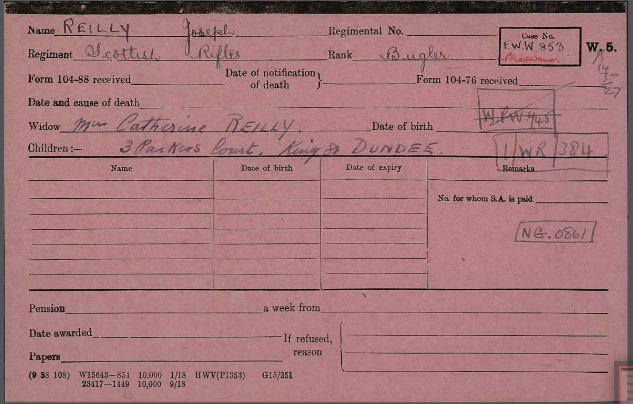 Name REILLY Joseph Regimental No. Case No. F.W.W 853 W. 5.
Regiment Scottish Rifles Rank Bugler
Form 104-88 received Date of notification of death } Form 104-76 received
Date and cause of death
Widow Mrs Catherine REILLY. Date of birth W.P.W 945
Children:— 3 Parkers Court. King St DUNDEE. 1/WR/384
Name Date of birth Date of expiry Remarks
No. for whom S.A. is paid
NG. 0861
Pension a week from
Date awarded If refused, reason
Papers
(9 38 108) W15643—851 10,000 1/18 HWV(P1353) G15/251
23417—1449 10,000 9/18